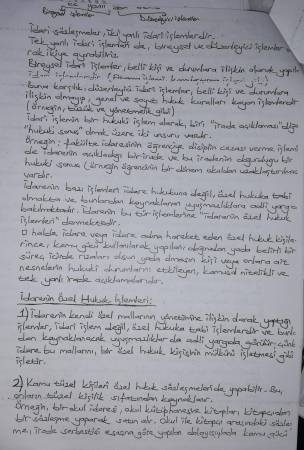 Bireysel işlemler Düzenleyici işlemler
İdari sözleşmeler, iki yanlı idari işlemlerdir.
Tek yanlı idari işlemler de, bireysel ve düzenleyici işlemler o-
rak ikiye ayrılabilir.
Bireysel idari işlemler, belli kişi ve durumlara ilişkin olarak yapılan
idari işlemlerdir
Buna karşılık, düzenleyici idari işlemler, belli kişi ve durumlara
ilişkin olmayıp, genel ve soyut hukuk kuralları koyan işlemlerdir.
(örneğin, tüzük ve yönetmelik gibi)
İdari işlemin bir hukuki işlem olarak, biri "irade açıklaması" diğeri
"hukuki sonuç" olmak üzere iki unsuru vardır.
Örneğin; fakülte idaresinin öğrenciye disiplin cezası verme işlemin-
de idarenin açıkladığı bir irade ve bu iradenin doğurduğu bir
hukuki sonuç (örneğin öğrencinin bir dönem okuldan uzaklaştırılması)
vardır.
İdarenin bazı işlemleri idare hukukuna değil, özel hukuka tabi
olmakta ve bunlardan kaynaklanan uyuşmazlıklara adli yargıda
bakılmaktadır. İdarenin bu tür işlemlerine "idarenin özel hukuk
işlemleri" denmektedir.
O halde idare veya idare adına hareket eden özel hukuk kişile-
rince, kamu gücü kullanılarak yapılan, doğrudan yada belirli bir
süreç içinde rızaları olsun yada olmasın kişi veya onlara ait
nesnelerin hukuki durumlarını etkileyen, kamusal nitelikli ve
tek yanlı irade açıklamalarıdır.
İdarenin Özel Hukuk İşlemleri:
1) İdarenin kendi özel mallarının yönetimine ilişkin olarak yaptığı
işlemler, idari işlem değil, özel hukuka tabi işlemlerdir ve bunlar-
dan kaynaklanacak uyuşmazlıklar da adli yargıda görülür. Çünkü
idare bu mallarını, bir özel hukuk kişisinin mülkünü işletmesi gibi
işletir.
2) Kamu tüzel kişileri özel hukuk sözleşmeleri de yapabilir. Bu,
onların tüzel kişilik sıfatından kaynaklanır.
Örneğin, bir okul idaresi, okul kütüphanesine kitapları kitapçıdan
bir sözleşme yaparak satın alır. Okul ile kitapçı arasındaki sözleş-
me, irade serbestliği esasına göre yapılır dolayısıyla kamu gücü